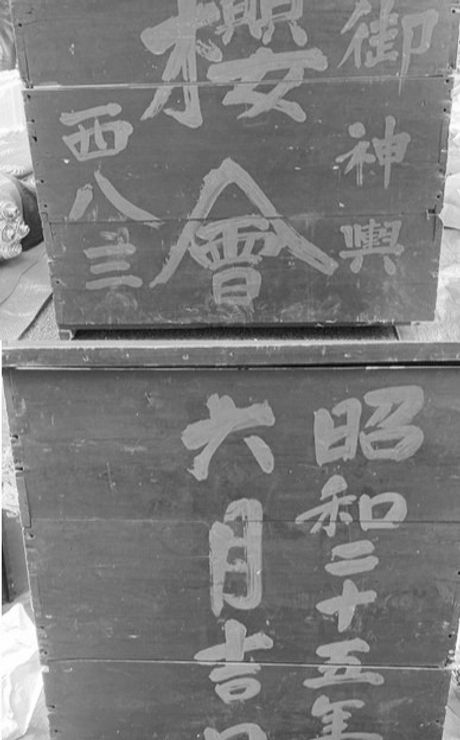 御神輿
櫻會
西八三
昭和二十五年
六月吉